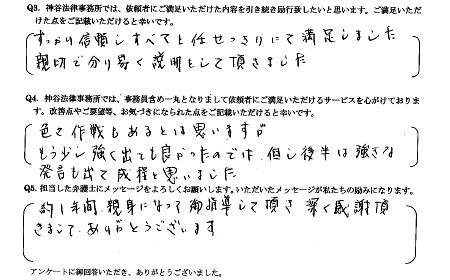 Q3. 神谷法律事務所では、依頼者にご満足いただけた内容を引き続き励行致したいと思います。ご満足いただ
けた点をご記載いただけると幸いです。
すっかり信頼しすべてを任せっきりにて満足しました
親切で分り易く説明をして頂きました
Q4. 神谷法律事務所では、事務員含め一丸となりまして依頼者にご満足いただけるサービスを心がけておりま
す。改善点やご要望等、お気づきになられた点をご記載いただけると幸いです。
色々作戦もあるとは思いますが
もう少し強く出ても良かったのでは、但し後半は強きな
発言も出て成程と思いました
Q5. 担当した弁護士にメッセージをよろしくお願いします。いただいたメッセージが私たちの励みになります。
約1年間、親身になって御指導して頂き 深く感謝頂
きまして、ありがとうございます
アンケートに御回答いただき、ありがとうございました。